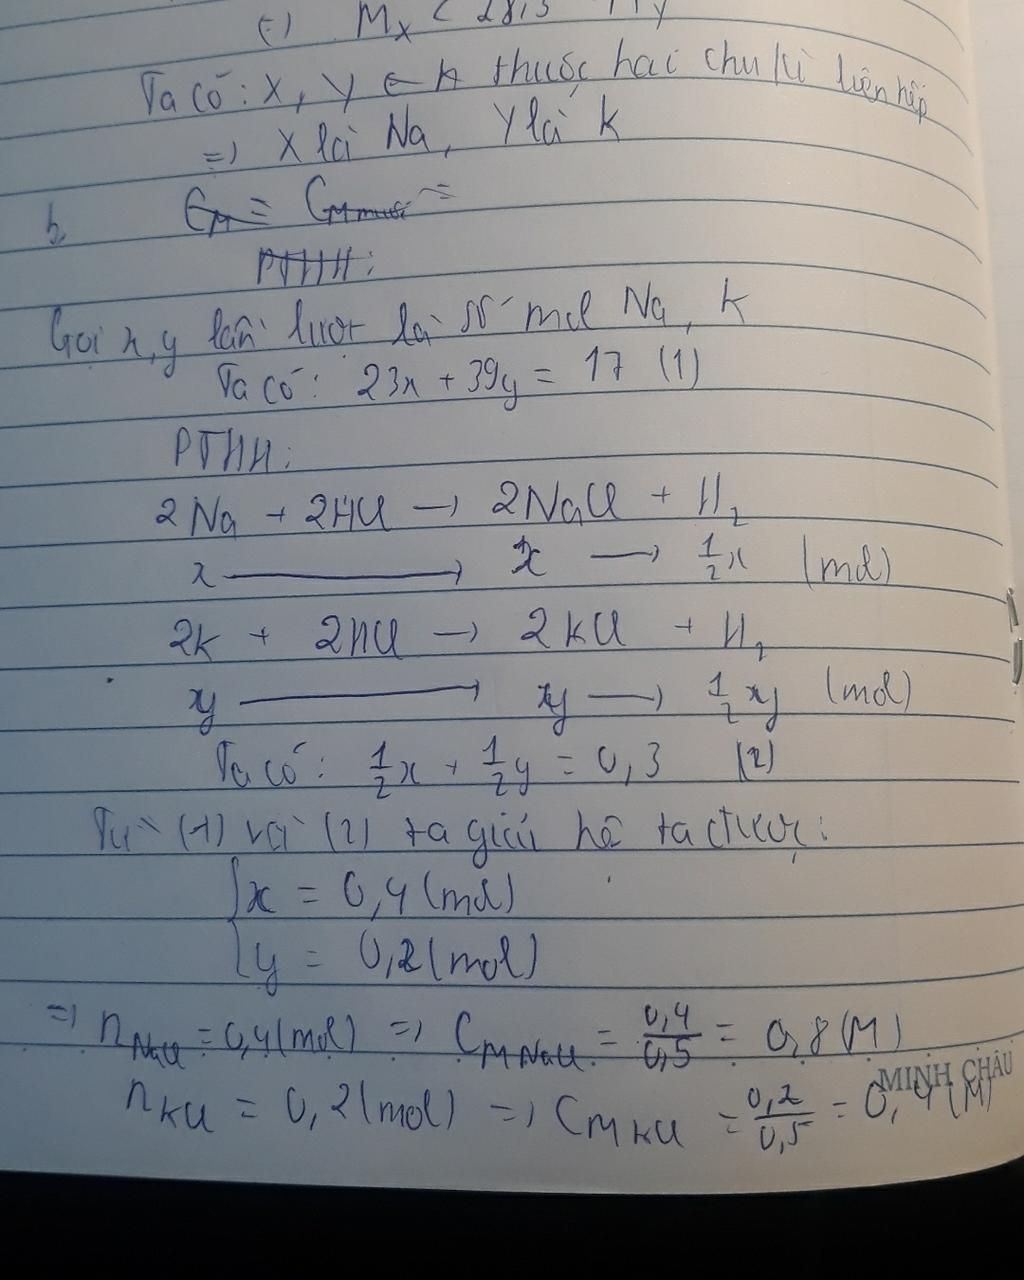 (=) Mx < 28,3 < My
Ta có: X, Y ∈ A thuộc hai chu kì liên tiếp
=) X là Na, Y là K
b, CM = CM muối =
PTHH:
Gọi x, y lần lượt là số mol Na, K
Ta có: 23x + 39y = 17 (1)
PTHH:
2Na + 2HCl → 2NaCl + H2
x → x → 1/2x (mol)
2K + 2HCl → 2KCl + H2
y → y → 1/2y (mol)
Ta có: 1/2x + 1/2y = 0,3 (2)
Từ (1) và (2) ta giải hệ ta được:
x = 0,4 (mol)
y = 0,2 (mol)
=) nNaCl = 0,4 (mol) =) CM NaCl = 0,4/0,5 = 0,8 (M)
MINH CHÂU
nKCl = 0,2 (mol) =) CM KCl = 0,2/0,5 = 0,4 (M)